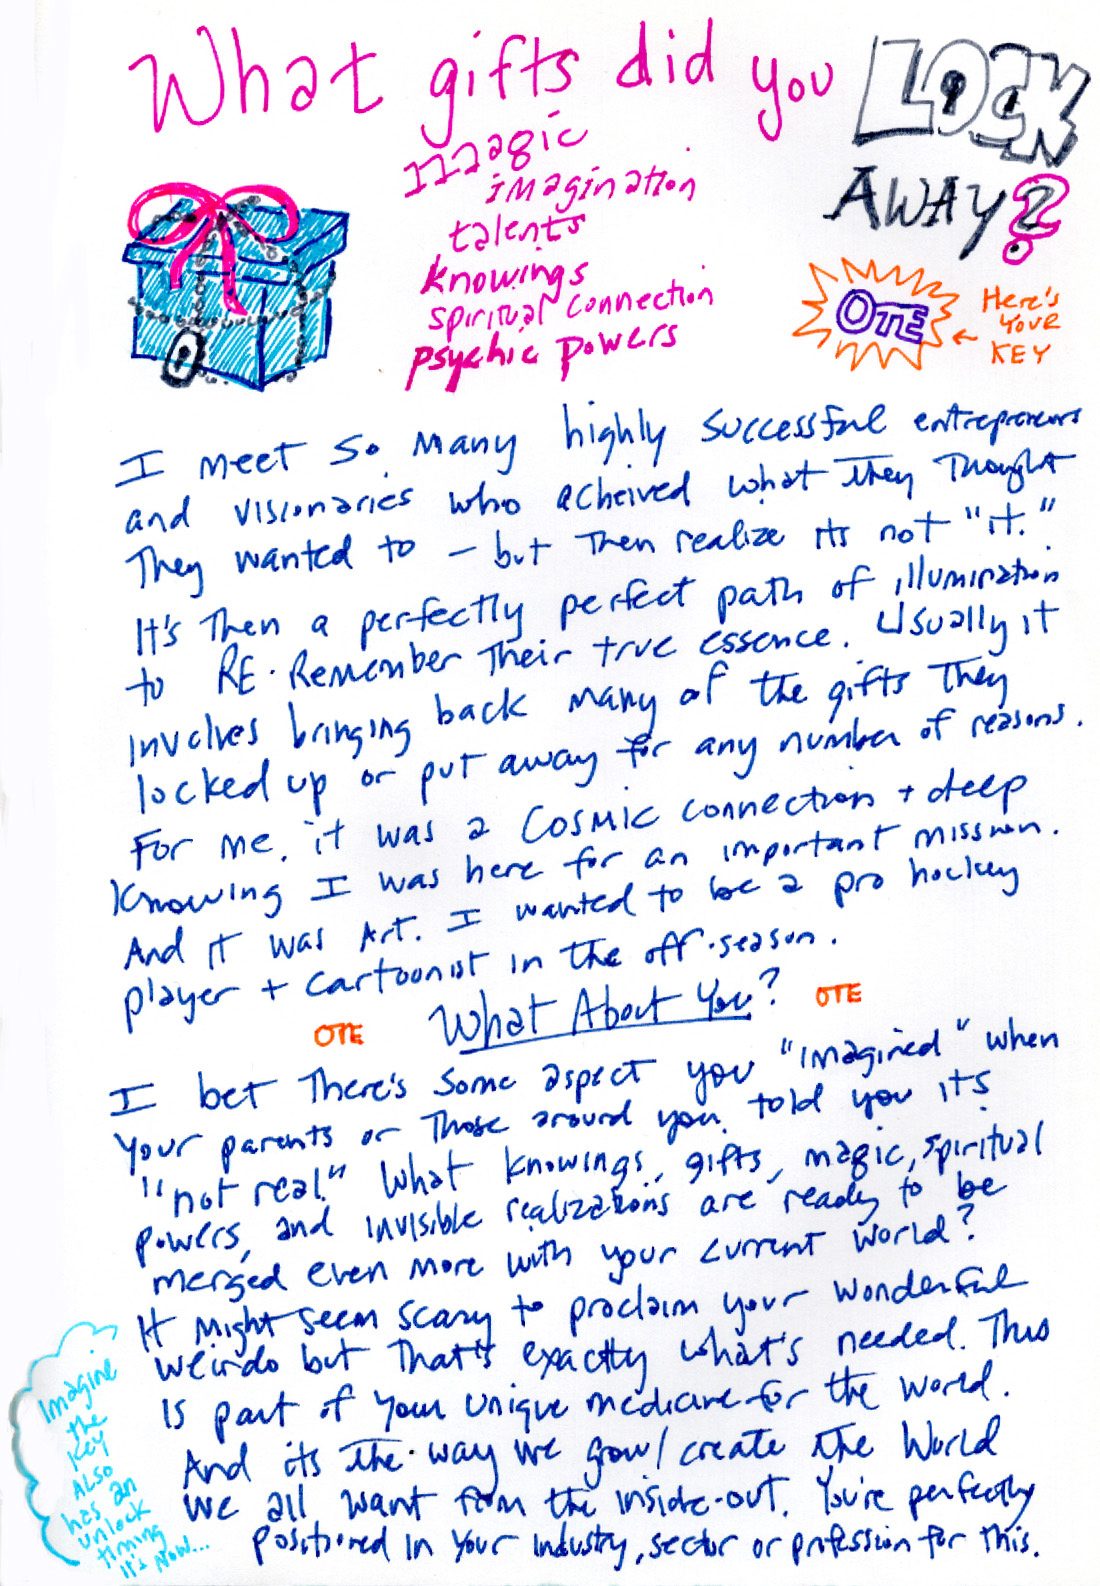 What gifts did you LOCK
AWAY?
magic
imagination
talents
knowings
spiritual connection
psychic powers
OTE
Here's
Your
KEY
I meet so many highly successful entrepreneurs
and visionaries who acheived what they thought
they wanted to – but then realize its not "it."
It's then a perfectly perfect path of illumination
to RE·Remember their true essence. Usually it
involves bringing back many of the gifts they
locked up or put away for any number of reasons.
For me, it was a cosmic connection + deep
knowing I was here for an important mission.
And it was Art. I wanted to be a pro hockey
player + cartoonist in the off-season.
OTE What About You? OTE
I bet there's some aspect you "imagined" when
your parents or those around you told you its
"not real." What knowings, gifts, magic, spiritual
powers, and invisible realizations are ready to be
merged even more with your current world?
It might seem scary to proclaim your wonderful
weirdo but that's exactly what's needed. This
is part of your unique medicine for the world.
And its the way we grow/create the World
we all want from the inside-out. You're perfectly
positioned in your industry, sector or profession for this.
Imagine
the
key
ALSO
has an
unlock
timing
It's Now...